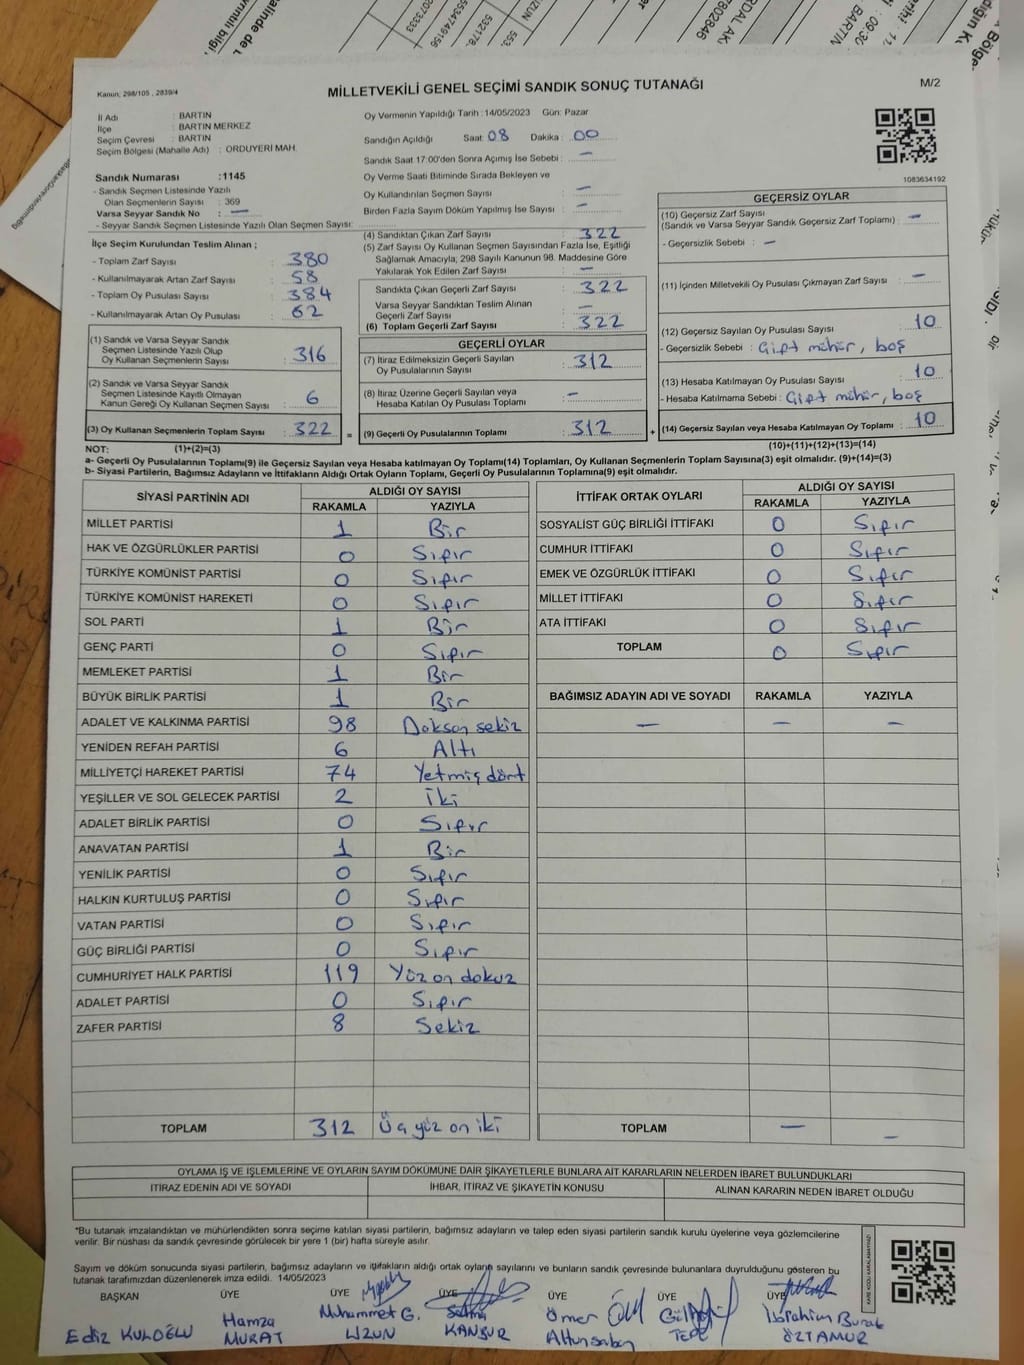 Kanun; 298/105 , 2839/4
MİLLETVEKİLİ GENEL SEÇİMİ SANDIK SONUÇ TUTANAĞI
M/2
İl Adı : BARTIN
İlçe : BARTIN MERKEZ
Seçim Çevresi : BARTIN
Seçim Bölgesi (Mahalle Adı) : ORDUYERİ MAH.
Sandık Numarası :1145
- Sandık Seçmen Listesinde Yazılı
Olan Seçmenlerin Sayısı : 369
Varsa Seyyar Sandık No : —
- Seyyar Sandık Seçmen Listesinde Yazılı Olan Seçmen Sayısı:
Oy Vermenin Yapıldığı Tarih :14/05/2023 Gün: Pazar
Sandığın Açıldığı Saat: 08 Dakika : 00
Sandık Saat 17:00'den Sonra Açımış İse Sebebi : —
Oy Verme Saati Bitiminde Sırada Bekleyen ve
Oy Kullandırılan Seçmen Sayısı : —
Birden Fazla Sayım Döküm Yapılmış İse Sayısı : —
1083634192
İlçe Seçim Kurulundan Teslim Alınan ;
- Toplam Zarf Sayısı : 380
- Kullanılmayarak Artan Zarf Sayısı : 58
- Toplam Oy Pusulası Sayısı : 384
- Kullanılmayarak Artan Oy Pusulası : 62
(1) Sandık ve Varsa Seyyar Sandık
Seçmen Listesinde Yazılı Olup
Oy Kullanan Seçmenlerin Sayısı : 316
(2) Sandık ve Varsa Seyyar Sandık
Seçmen Listesinde Kayıtlı Olmayan
Kanun Gereği Oy Kullanan Seçmen Sayısı : 6
(3) Oy Kullanan Seçmenlerin Toplam Sayısı : 322
(4) Sandıktan Çıkan Zarf Sayısı : 322
(5) Zarf Sayısı Oy Kullanan Seçmen Sayısından Fazla İse, Eşitliği
Sağlamak Amacıyla; 298 Sayılı Kanunun 98. Maddesine Göre
Yakılarak Yok Edilen Zarf Sayısı : —
Sandıkta Çıkan Geçerli Zarf Sayısı : 322
Varsa Seyyar Sandıktan Teslim Alınan
Geçerli Zarf Sayısı : —
(6) Toplam Geçerli Zarf Sayısı : 322
GEÇERLİ OYLAR
(7) İtiraz Edilmeksizin Geçerli Sayılan
Oy Pusulalarının Sayısı : 312
(8) İtiraz Üzerine Geçerli Sayılan veya
Hesaba Katılan Oy Pusulası Toplamı : —
= (9) Geçerli Oy Pusulalarının Toplamı : 312 +
GEÇERSİZ OYLAR
(10) Geçersiz Zarf Sayısı
(Sandık ve Varsa Seyyar Sandık Geçersiz Zarf Toplamı) : —
- Geçersizlik Sebebi : —
(11) İçinden Milletvekili Oy Pusulası Çıkmayan Zarf Sayısı : —
(12) Geçersiz Sayılan Oy Pusulası Sayısı : 10
- Geçersizlik Sebebi : Gift mühür, boş
(13) Hesaba Katılmayan Oy Pusulası Sayısı : 10
- Hesaba Katılmama Sebebi : Gift mühür, boş
(14) Geçersiz Sayılan veya Hesaba Katılmayan Oy Toplamı : 10
NOT: (1)+(2)=(3) (10)+(11)+(12)+(13)=(14)
a- Geçerli Oy Pusulalarının Toplamı(9) ile Geçersiz Sayılan veya Hesaba katılmayan Oy Toplamı(14) Toplamları, Oy Kullanan Seçmenlerin Toplam Sayısına(3) eşit olmalıdır. (9)+(14)=(3)
b- Siyasi Partilerin, Bağımsız Adayların ve İttifakların Aldığı Ortak Oyların Toplamı, Geçerli Oy Pusulalarının Toplamına(9) eşit olmalıdır.
SİYASİ PARTİNİN ADI ALDIĞI OY SAYISI
RAKAMLA YAZIYLA
MİLLET PARTİSİ 1 Bir
HAK VE ÖZGÜRLÜKLER PARTİSİ 0 Sıfır
TÜRKİYE KOMÜNİST PARTİSİ 0 Sıfır
TÜRKİYE KOMÜNİST HAREKETİ 0 Sıfır
SOL PARTİ 1 Bir
GENÇ PARTİ 0 Sıfır
MEMLEKET PARTİSİ 1 Bir
BÜYÜK BİRLİK PARTİSİ 1 Bir
ADALET VE KALKINMA PARTİSİ 98 Doksan sekiz
YENİDEN REFAH PARTİSİ 6 Altı
MİLLİYETÇİ HAREKET PARTİSİ 74 Yetmiş dört
YEŞİLLER VE SOL GELECEK PARTİSİ 2 İki
ADALET BİRLİK PARTİSİ 0 Sıfır
ANAVATAN PARTİSİ 1 Bir
YENİLİK PARTİSİ 0 Sıfır
HALKIN KURTULUŞ PARTİSİ 0 Sıfır
VATAN PARTİSİ 0 Sıfır
GÜÇ BİRLİĞİ PARTİSİ 0 Sıfır
CUMHURİYET HALK PARTİSİ 119 Yüz on dokuz
ADALET PARTİSİ 0 Sıfır
ZAFER PARTİSİ 8 Sekiz
TOPLAM 312 Üç yüz on iki
İTTİFAK ORTAK OYLARI ALDIĞI OY SAYISI
RAKAMLA YAZIYLA
SOSYALİST GÜÇ BİRLİĞİ İTTİFAKI 0 Sıfır
CUMHUR İTTİFAKI 0 Sıfır
EMEK VE ÖZGÜRLÜK İTTİFAKI 0 Sıfır
MİLLET İTTİFAKI 0 Sıfır
ATA İTTİFAKI 0 Sıfır
TOPLAM 0 Sıfır
BAĞIMSIZ ADAYIN ADI VE SOYADI RAKAMLA YAZIYLA
— — —
TOPLAM — —
OYLAMA İŞ VE İŞLEMLERİNE VE OYLARIN SAYIM DÖKÜMÜNE DAİR ŞİKAYETLERLE BUNLARA AİT KARARLARIN NELERDEN İBARET BULUNDUKLARI
İTİRAZ EDENİN ADI VE SOYADI İHBAR, İTİRAZ VE ŞİKAYETİN KONUSU ALINAN KARARIN NEDEN İBARET OLDUĞU
*Bu tutanak imzalandıktan ve mühürlendikten sonra seçime katılan siyasi partilerin, bağımsız adayların ve talep eden siyasi partilerin sandık kurulu üyelerine veya gözlemcilerine
verilir. Bir nüshası da sandık çevresinde görülecek bir yere 1 (bir) hafta süreyle asılır.
Sayım ve döküm sonucunda siyasi partilerin, bağımsız adayların ve ittifakların aldığı ortak oyların sayılarını ve bunların sandık çevresinde bulunanlara duyrulduğunu gösteren bu
tutanak tarafımızdan düzenlenerek imza edildi. 14/05/2023
BAŞKAN ÜYE ÜYE ÜYE ÜYE ÜYE
Ediz KULOĞLU
Hamza MURAT
Muhammet G. UZUN
KANBUR
Ömer Altunsaban
TEPE
İbrahim Burak ÖZTAMUR